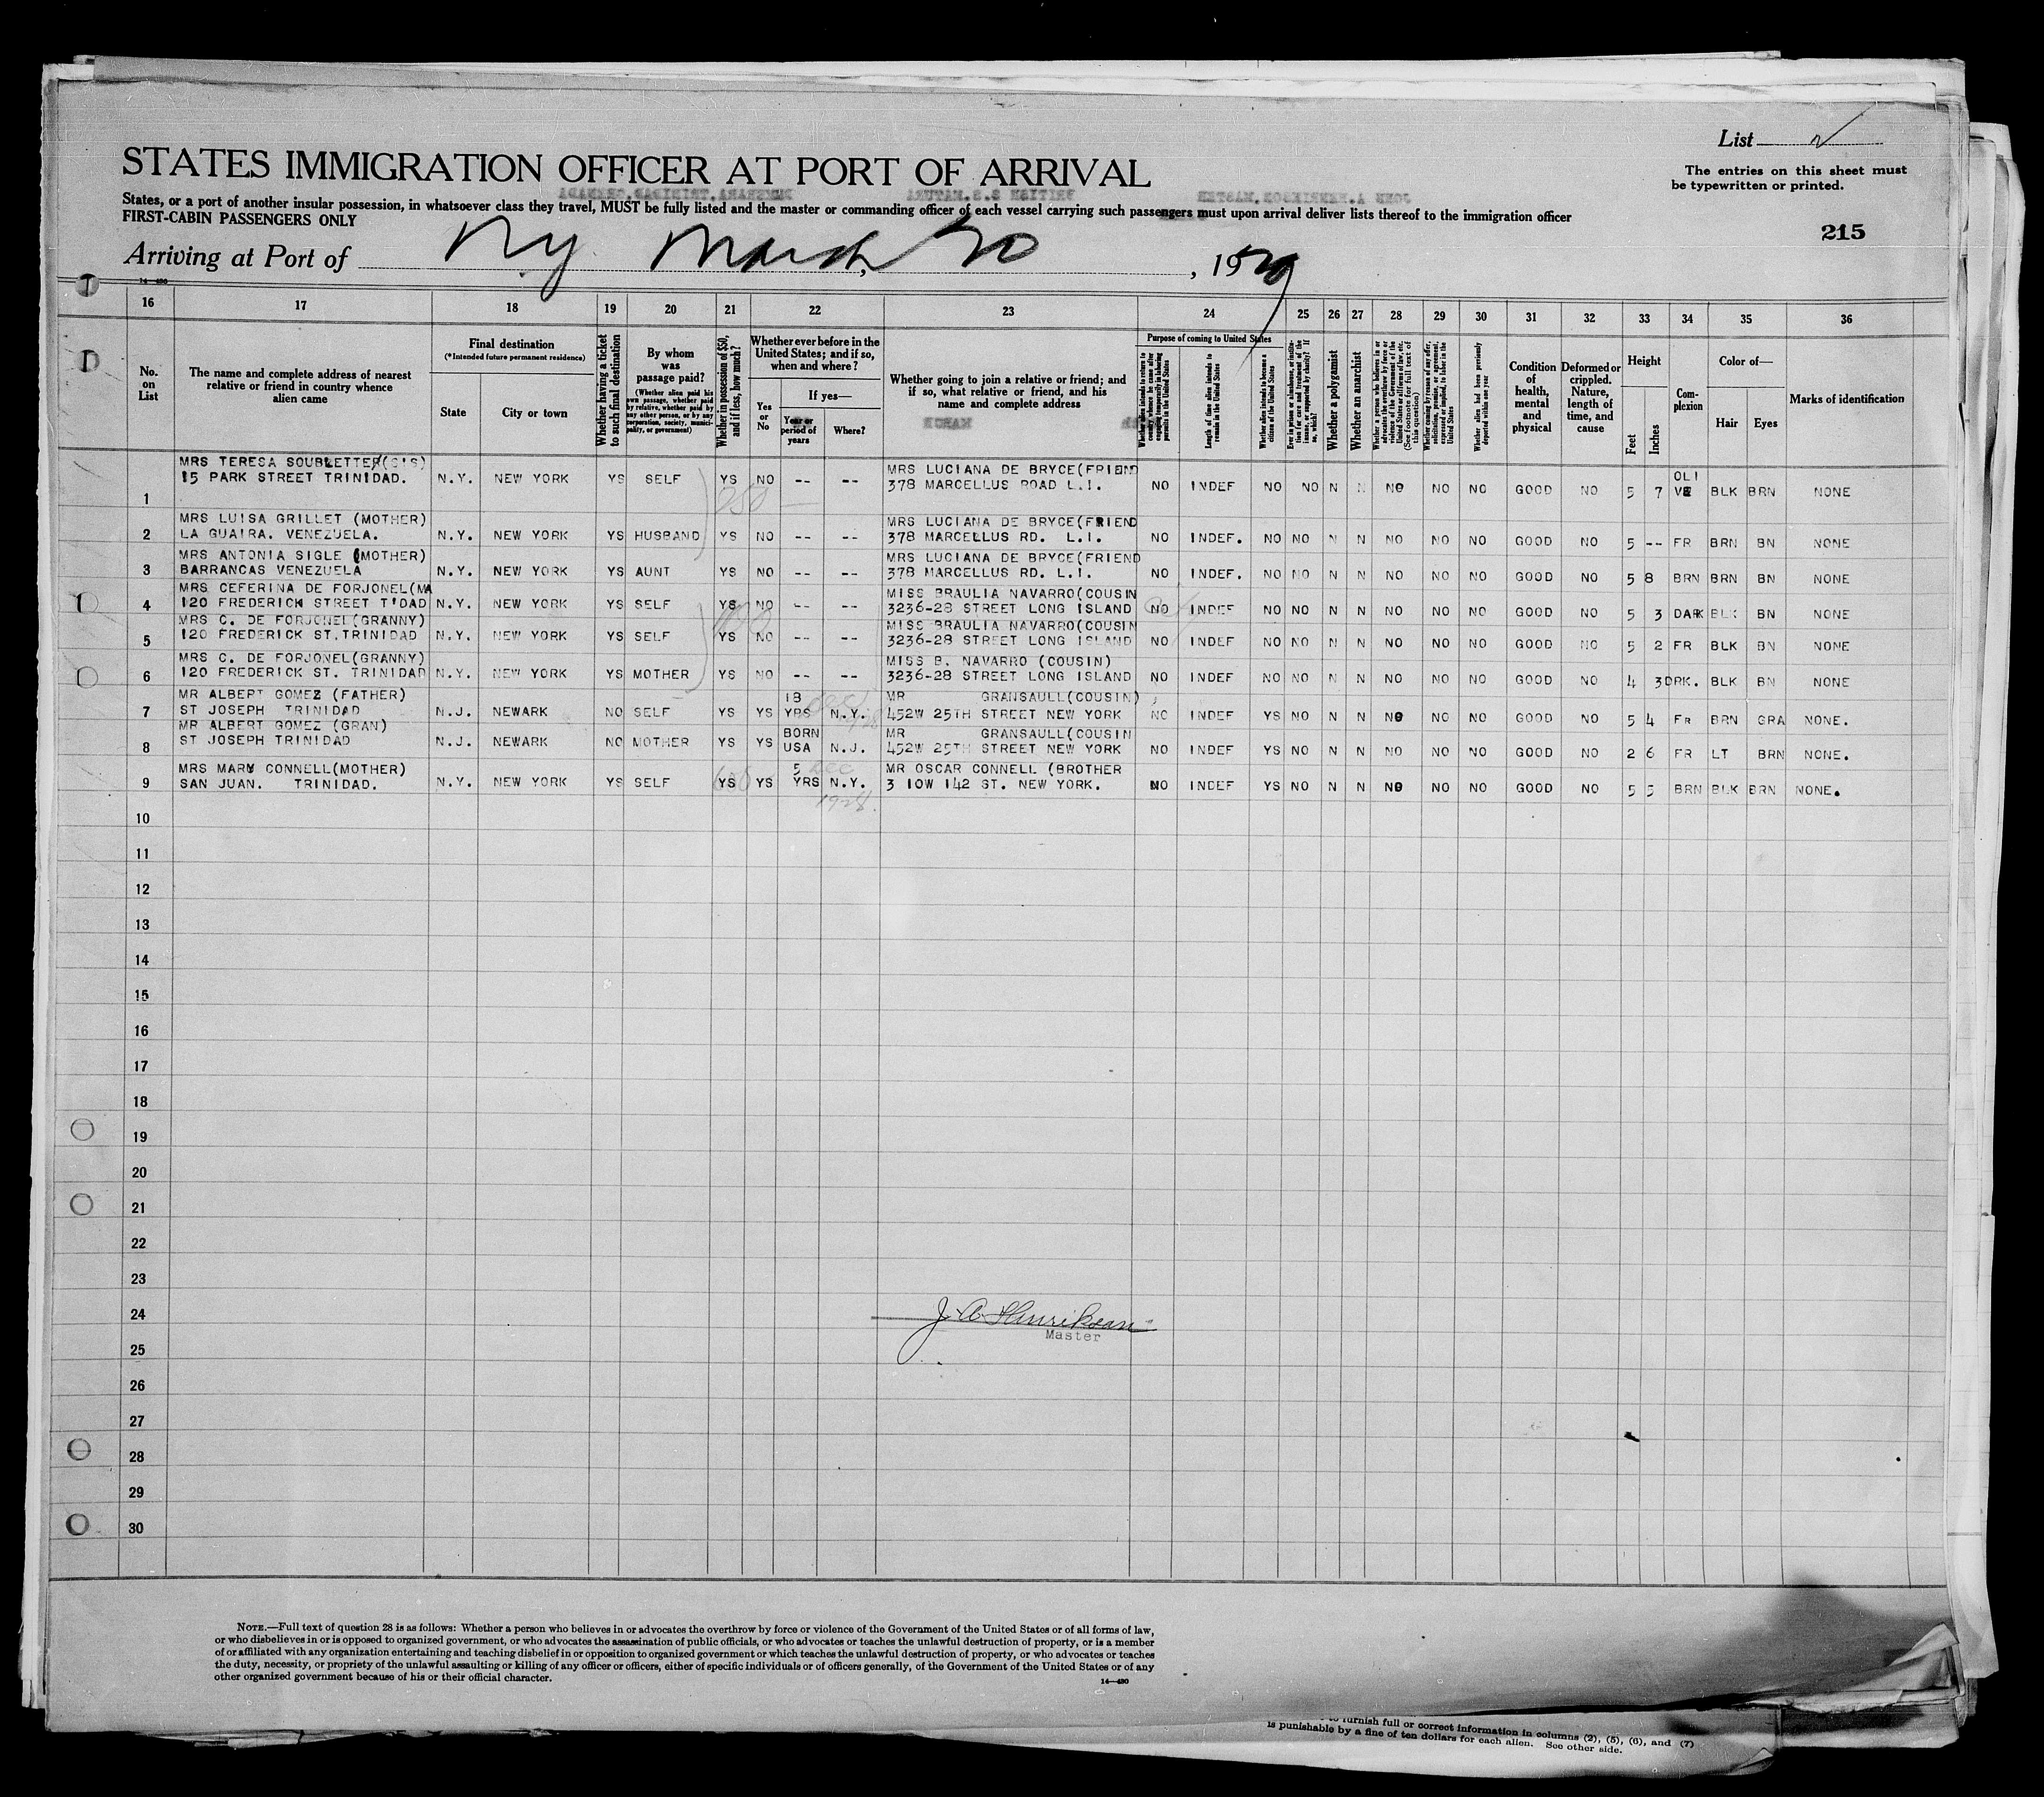 List 2
STATES IMMIGRATION OFFICER AT PORT OF ARRIVAL
The entries on this sheet must
be typewritten or printed.
States, or a port of another insular possession, in whatsoever class they travel, MUST be fully listed and the master or commanding officer of each vessel carrying such passengers must upon arrival deliver lists thereof to the immigration officer
FIRST-CABIN PASSENGERS ONLY
215
Arriving at Port of Ny March 20, 1929
14—430
16 17 18 19 20 21 22 23 24 25 26 27 28 29 30 31 32 33 34 35 36
No. on List
The name and complete address of nearest relative or friend in country whence alien came
Final destination
(*Intended future permanent residence)
State
City or town
Whether having a ticket to such final destination
By whom was passage paid?
(Whether alien paid his own passage, whether paid by relative, whether paid by any other person, or by any corporation, society, municipality, or government)
Whether in possession of $50, and if less, how much?
Whether ever before in the United States; and if so, when and where?
Yes or No
If yes—
Year or period of years
Where?
Whether going to join a relative or friend; and if so, what relative or friend, and his name and complete address
Purpose of coming to United States
Whether alien intends to return to country whence he came after engaging temporarily in laboring pursuits in the United States
Length of time alien intends to remain in the United States
Whether alien intends to become a citizen of the United States
Ever in prison or almshouse, or institution for care and treatment of the insane, or supported by charity? If so, which?
Whether a polygamist
Whether an anarchist
Whether a person who believes in or advocates the overthrow by force or violence of the Government of the United States or all forms of law, etc. (See footnote for full text of this question)
Whether coming by reason of any offer, solicitation, promise, or agreement, expressed or implied, to labor in the United States
Whether alien had been previously deported within one year
Condition of health, mental and physical
Deformed or crippled. Nature, length of time, and cause
Height
Feet
Inches
Complexion
Color of—
Hair
Eyes
Marks of identification
MRS TERESA SOUBLETTER(SIS) MRS LUCIANA DE BRYCE(FRIEND OLI
1 15 PARK STREET TRINIDAD. N.Y. NEW YORK YS SELF YS NO -- -- 378 MARCELLUS ROAD L.I. NO INDEF NO NO N N NO NO NO GOOD NO 5 7 VE BLK BRN NONE
250
MRS LUISA GRILLET (MOTHER) MRS LUCIANA DE BRYCE(FRIEND
2 LA GUAIRA. VENEZUELA. N.Y. NEW YORK YS HUSBAND YS NO -- -- 378 MARCELLUS RD. L.I. NO INDEF. NO NO N N NO NO NO GOOD NO 5 -- FR BRN BN NONE
MRS ANTONIA SIGLE (MOTHER) MRS LUCIANA DE BRYCE(FRIEND
3 BARRANCAS VENEZUELA N.Y. NEW YORK YS AUNT YS NO -- -- 378 MARCELLUS RD. L.I. NO INDEF. NO NO N N NO NO NO GOOD NO 5 8 BRN BRN BN NONE
MRS CEFERINA DE FORJONEL(MA MISS BRAULIA NAVARRO(COUSIN
4 120 FREDERICK STREET T'DAD N.Y. NEW YORK YS SELF YS NO -- -- 3236-28 STREET LONG ISLAND NO INDEF NO NO N N NO NO NO GOOD NO 5 3 DARK BLK BN NONE
MRS C. DE FORJONEL(GRANNY) MISS BRAULIA NAVARRO(COUSIN
5 120 FREDERICK ST.TRINIDAD N.Y. NEW YORK YS SELF YS NO -- -- 3236-28 STREET LONG ISLAND NO INDEF NO NO N N NO NO NO GOOD NO 5 2 FR BLK BN NONE
MRS C. DE FORJONEL(GRANNY) MISS B. NAVARRO (COUSIN)
6 120 FREDERICK ST. TRINIDAD N.Y. NEW YORK YS MOTHER YS NO -- -- 3236-28 STREET LONG ISLAND NO INDEF NO NO N N NO NO NO GOOD NO 4 3 DRK. BLK BN NONE
MR ALBERT GOMEZ (FATHER) 18 MR GRANSAULL(COUSIN)
7 ST JOSEPH TRINIDAD N.J. NEWARK NO SELF YS YS YRS N.Y. 452W 25TH STREET NEW YORK NO INDEF YS NO N N NO NO NO GOOD NO 5 4 FR BRN GRA NONE.
MR ALBERT GOMEZ (GRAN) BORN MR GRANSAULL(COUSIN
8 ST JOSEPH TRINIDAD N.J. NEWARK NO MOTHER YS YS USA N.J. 452W 25TH STREET NEW YORK NO INDEF YS NO N N NO NO NO GOOD NO 2 6 FR LT BRN NONE.
MRS MARY CONNELL(MOTHER) 5 Dec MR OSCAR CONNELL (BROTHER
9 SAN JUAN. TRINIDAD. N.Y. NEW YORK YS SELF YS YS YRS N.Y. 3 10W 142 ST. NEW YORK. NO INDEF YS NO N N NO NO NO GOOD NO 5 5 BRN BLK BRN NONE.
1928.
10
11
12
13
14
15
16
17
18
19
20
21
22
23
24
J. A. Henriksen
Master
25
26
27
28
29
30
NOTE.—Full text of question 28 is as follows: Whether a person who believes in or advocates the overthrow by force or violence of the Government of the United States or of all forms of law,
or who disbelieves in or is opposed to organized government, or who advocates the assassination of public officials, or who advocates or teaches the unlawful destruction of property, or is a member
of or affiliated with any organization entertaining and teaching disbelief in or opposition to organized government or which teaches the unlawful destruction of property, or who advocates or teaches
the duty, necessity, or propriety of the unlawful assaulting or killing of any officer or officers, either of specific individuals or of officers generally, of the Government of the United States or of any
other organized government because of his or their official character.
14—430
to furnish full or correct information in columns (2), (5), (6), and (7)
is punishable by a fine of ten dollars for each alien. See other side.